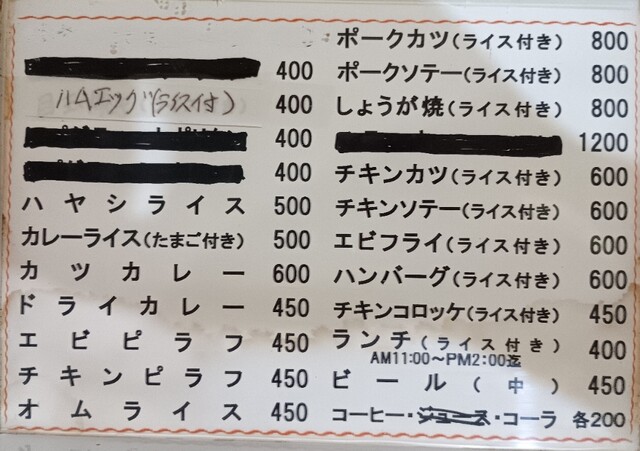 400
ハムエッグ(ライス付)　400
400
400
ハヤシライス　500
カレーライス(たまご付き)　500
カツカレー　600
ドライカレー　450
エビピラフ　450
チキンピラフ　450
オムライス　450
ポークカツ(ライス付き)　800
ポークソテー(ライス付き)　800
しょうが焼(ライス付き)　800
1200
チキンカツ(ライス付き)　600
チキンソテー(ライス付き)　600
エビフライ(ライス付き)　600
ハンバーグ(ライス付き)　600
チキンコロッケ(ライス付き)　450
ランチ(ライス付き)　400
AM11:00〜PM2:00迄
ビール(中)　450
コーヒー・ジュース・コーラ　各200